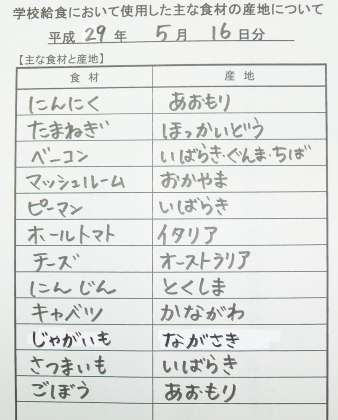 学校給食において使用した主な食材の産地について
平成 29 年 5 月 16 日分
【主な食材と産地】
食材 産地
にんにく あおもり
たまねぎ ほっかいどう
ベーコン いばらき・ぐんま・ちば
マッシュルーム おかやま
ピーマン いばらき
ホールトマト イタリア
チーズ オーストラリア
にんじん とくしま
キャベツ かながわ
じゃがいも ながさき
さつまいも いばらき
ごぼう あおもり